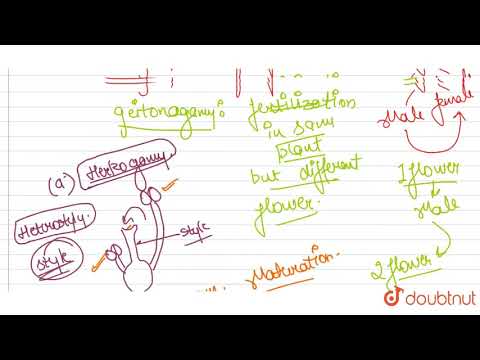 geitonogamy:
fertilization
in same
plant
but different
flower.
Male
female
1 flower
Male
2 flower
(a)
Herkogamy
Heterostyly.
style
style
Maturation.
doubtnut